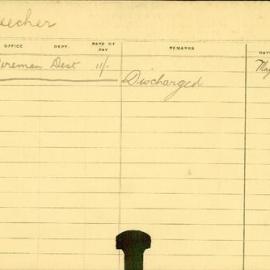 echer
OFFICE DEPT. RATE OF PAY REMARKS DAT
Dest 11/- May
Discharged